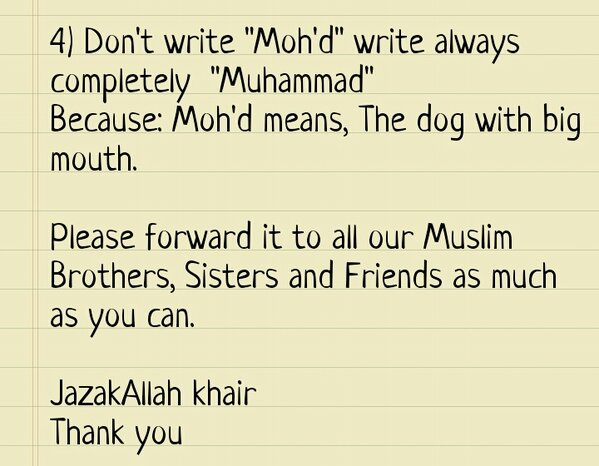 4) Don't write "Moh'd" write always
completely  "Muhammad"
Because: Moh'd means, The dog with big
mouth.
Please forward it to all our Muslim
Brothers, Sisters and Friends as much
as you can.
JazakAllah khair
Thank you